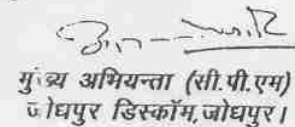 मुख्य अभियन्ता (सी.पी.एम)
जोधपुर डिस्कॉम,जोधपुर।